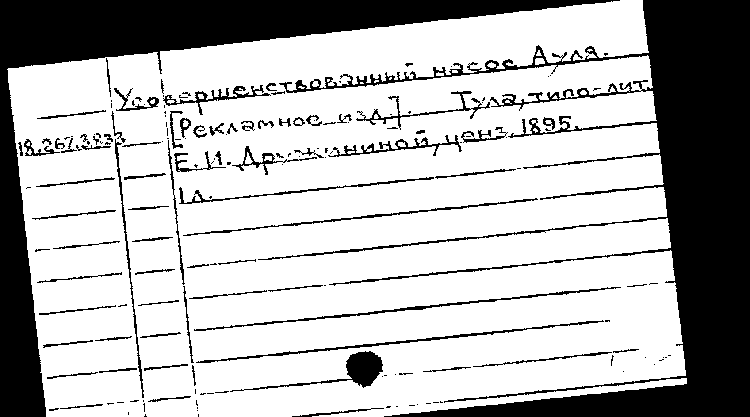 Усовершенствованный насос Ауля.
[Рекламное изд.]. Тула, типо-лит.
18.267.3833
Е. И. Дружининой, ценз. 1895.
1 л.